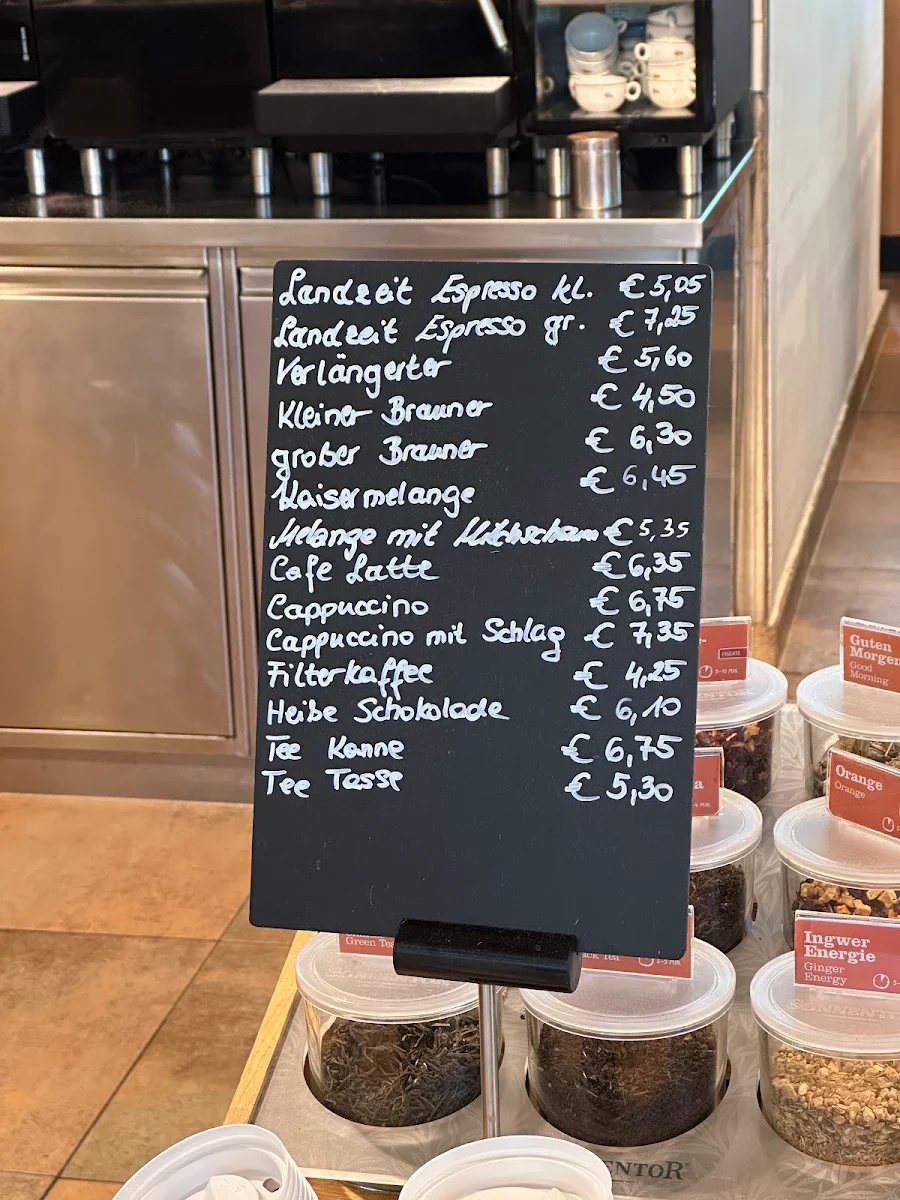 Landzeit Espresso kl. € 5,05
Landzeit Espresso gr. € 7,25
Verlängerter € 5,60
Kleiner Brauner € 4,50
großer Brauner € 6,30
Kaisermelange € 6,45
Melange mit Milchschaum € 5,35
Cafe Latte € 6,35
Cappuccino € 6,75
Cappuccino mit Schlag € 7,35
Filterkaffee € 4,25
Heiße Schokolade € 6,10
Tee Kanne € 6,75
Tee Tasse € 5,30
FRÜCHTE
5-10 MIN.
Guten
Morgen
Good
Morning
Orange
Orange
Ingwer
Energie
Ginger
Energy
Green Tea
Tea
2-3 MIN.